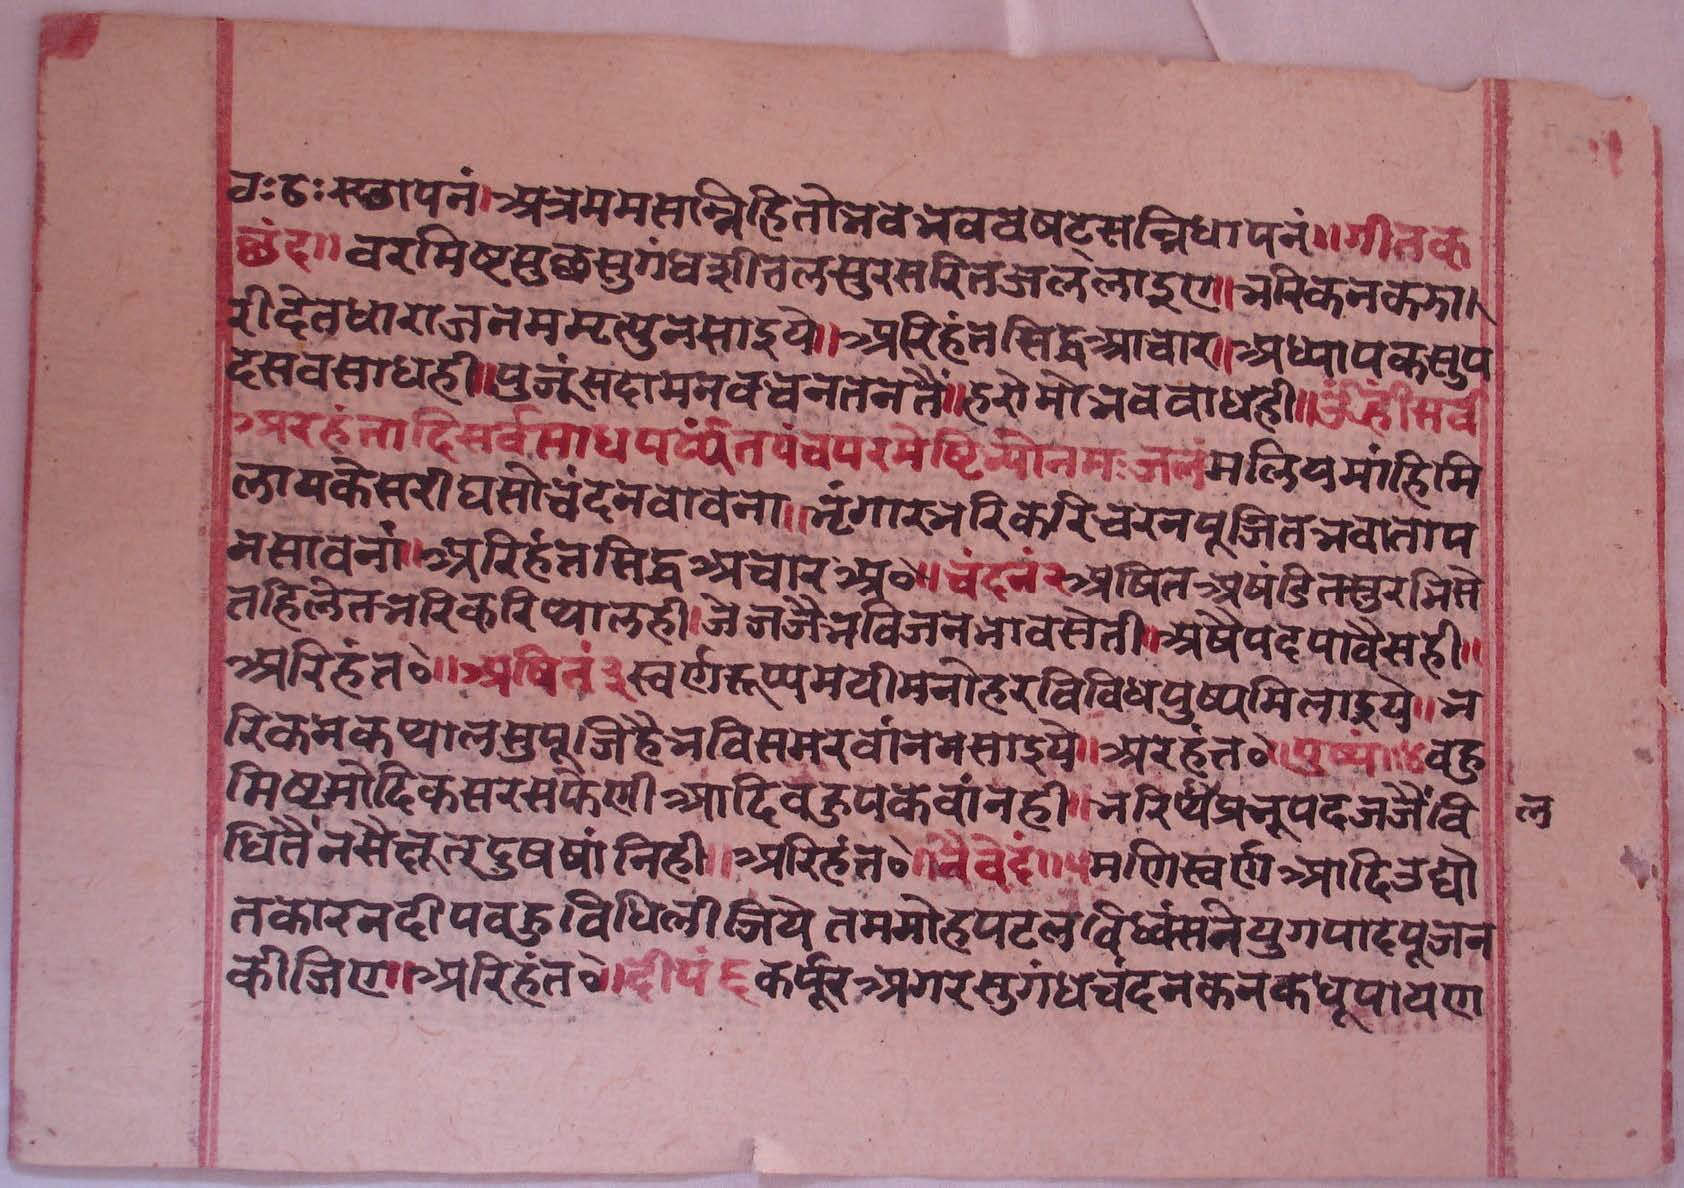 वः ठः स्छापनं । अत्र मम सान्निहितो भव भव वषट् सन्निधापनं ॥ गीतक
छंद ॥ वरमिष्टसुछसुगंधशीतलसुरसरितजललाइए ॥ भरिकनकझा
री देत धारा जनममृत्युनसाइये ॥ अरिहंत सिद्ध आचार ॥ अध्यापकसुप
देसवसाधही ॥ पुजूं सदा मनवचनतनतैं ॥ हरो मो भववाधही ॥ ॐ ह्रीं सर्व
अरहंतादिसर्वसाधपर्य्यंतपंचपरमेष्टिभ्यो नमः जलं मलियमांहि मि
लाय केसरी घसो चंदन वावना ॥ भृंगारभरिकरि चरनपूजित भवाताप
नसावनां ॥ अरिहंत सिद्ध अचार अ॰ ॥ चंदनं २ अषित अषंडित सुरभिसे
तहि लेत भरिकरि प्यालही । जे जजै भविजन भावसेती ॥ अषैपद पावै सही ॥
अरिहंत॰ ॥ अषितं ३ स्वर्णरूप्यमयी मनोहर विविधपुष्प मिलाइये ॥ भ
रिकनकप्यालसुपूजिहै भवि समरवांन नसाइये ॥ अरहंत॰ ॥ पुष्पं ॥ ४ वहु
मिष्टमोदिक सरस फेणी आदि वहु पकवांनही ॥ भरि थंप्रभूपद जजैं वि
ल
धितैं नसै क्षूत्दुषषांनिही ॥ अरिहंत॰ ॥ नैवेदं ॥ ५ मणिस्वर्ण आदि उद्यो
तकारन दीप वहुविधि लीजिये तममोहपटल विध्वंसने युगपाद पूजन
कीजिए ॥ अरिहंत॰ ॥ दीपं ६ कर्पूर अगर सुगंध चंदन कनकधूपायण